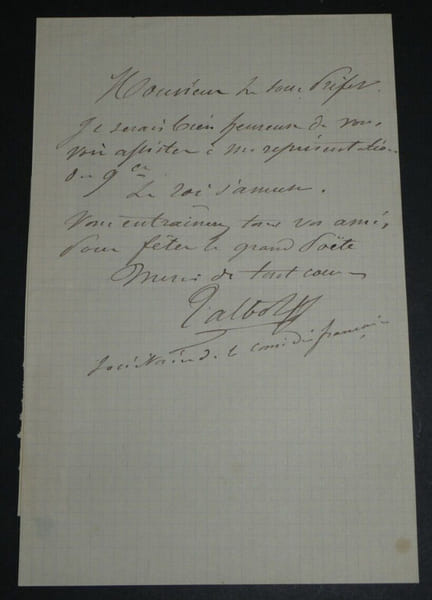 Monsieur le sous Préfet
Je serais bien heureuse de vous
voir assister à ma représentation
du 9 ct
Le roi s'amuse.
Vous entrainerez tous vos amis
pour fêter le grand Poëte
Merci de tout coeur
Talbot
sociétaire de la comédie française